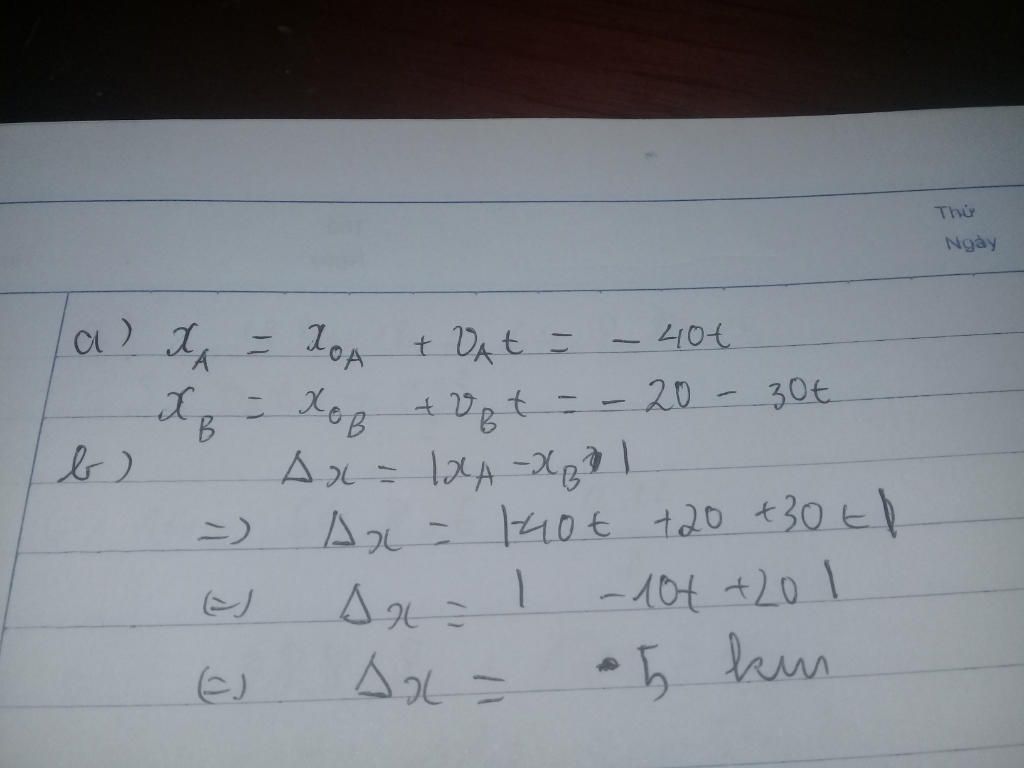 Thứ
Ngày
a) x_A = x_0A + v_A t = - 40t
x_B = x_0B + v_B t = - 20 - 30t
b) Δx = |x_A - x_B|
=> Δx = |-40t + 20 + 30t|
(=) Δx = | - 10t + 20 |
(=) Δx = 5 km